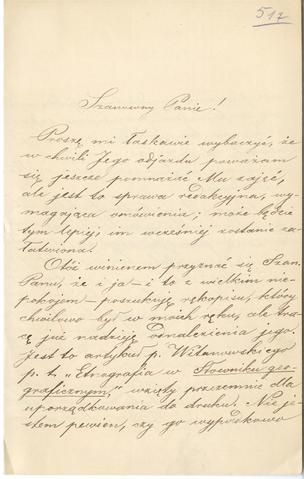 517
Szanowny Panie!
Proszę mi łaskawie wybaczyć, że
w chwili Jego odjazdu poważam
się jeszcze pomnażać Mu zajęć,
ale jest to sprawa redakcyjna, wy-
magająca omówienia; może będzie
tym lepiej, im wcześniej zostanie za-
łatwiona.
Otóż winienem przyznać się Szan.
Panu, że i ja — i to z wielkim nie-
pokojem — poszukuję rękopisu, który
chwilowo był w moich ręku, ale tra-
cę już nadzieję odnalezienia jego;
jest to artykuł p. Witanowskiego
p. t. „Etnografia w Słowniku geo-
graficznym," wzięty przezemnie dla
uporządkowania do druku. Nie je-
stem pewien, czy go wypadkowo